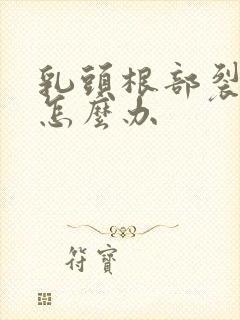 乳頭根部裂
怎麼办
符寶